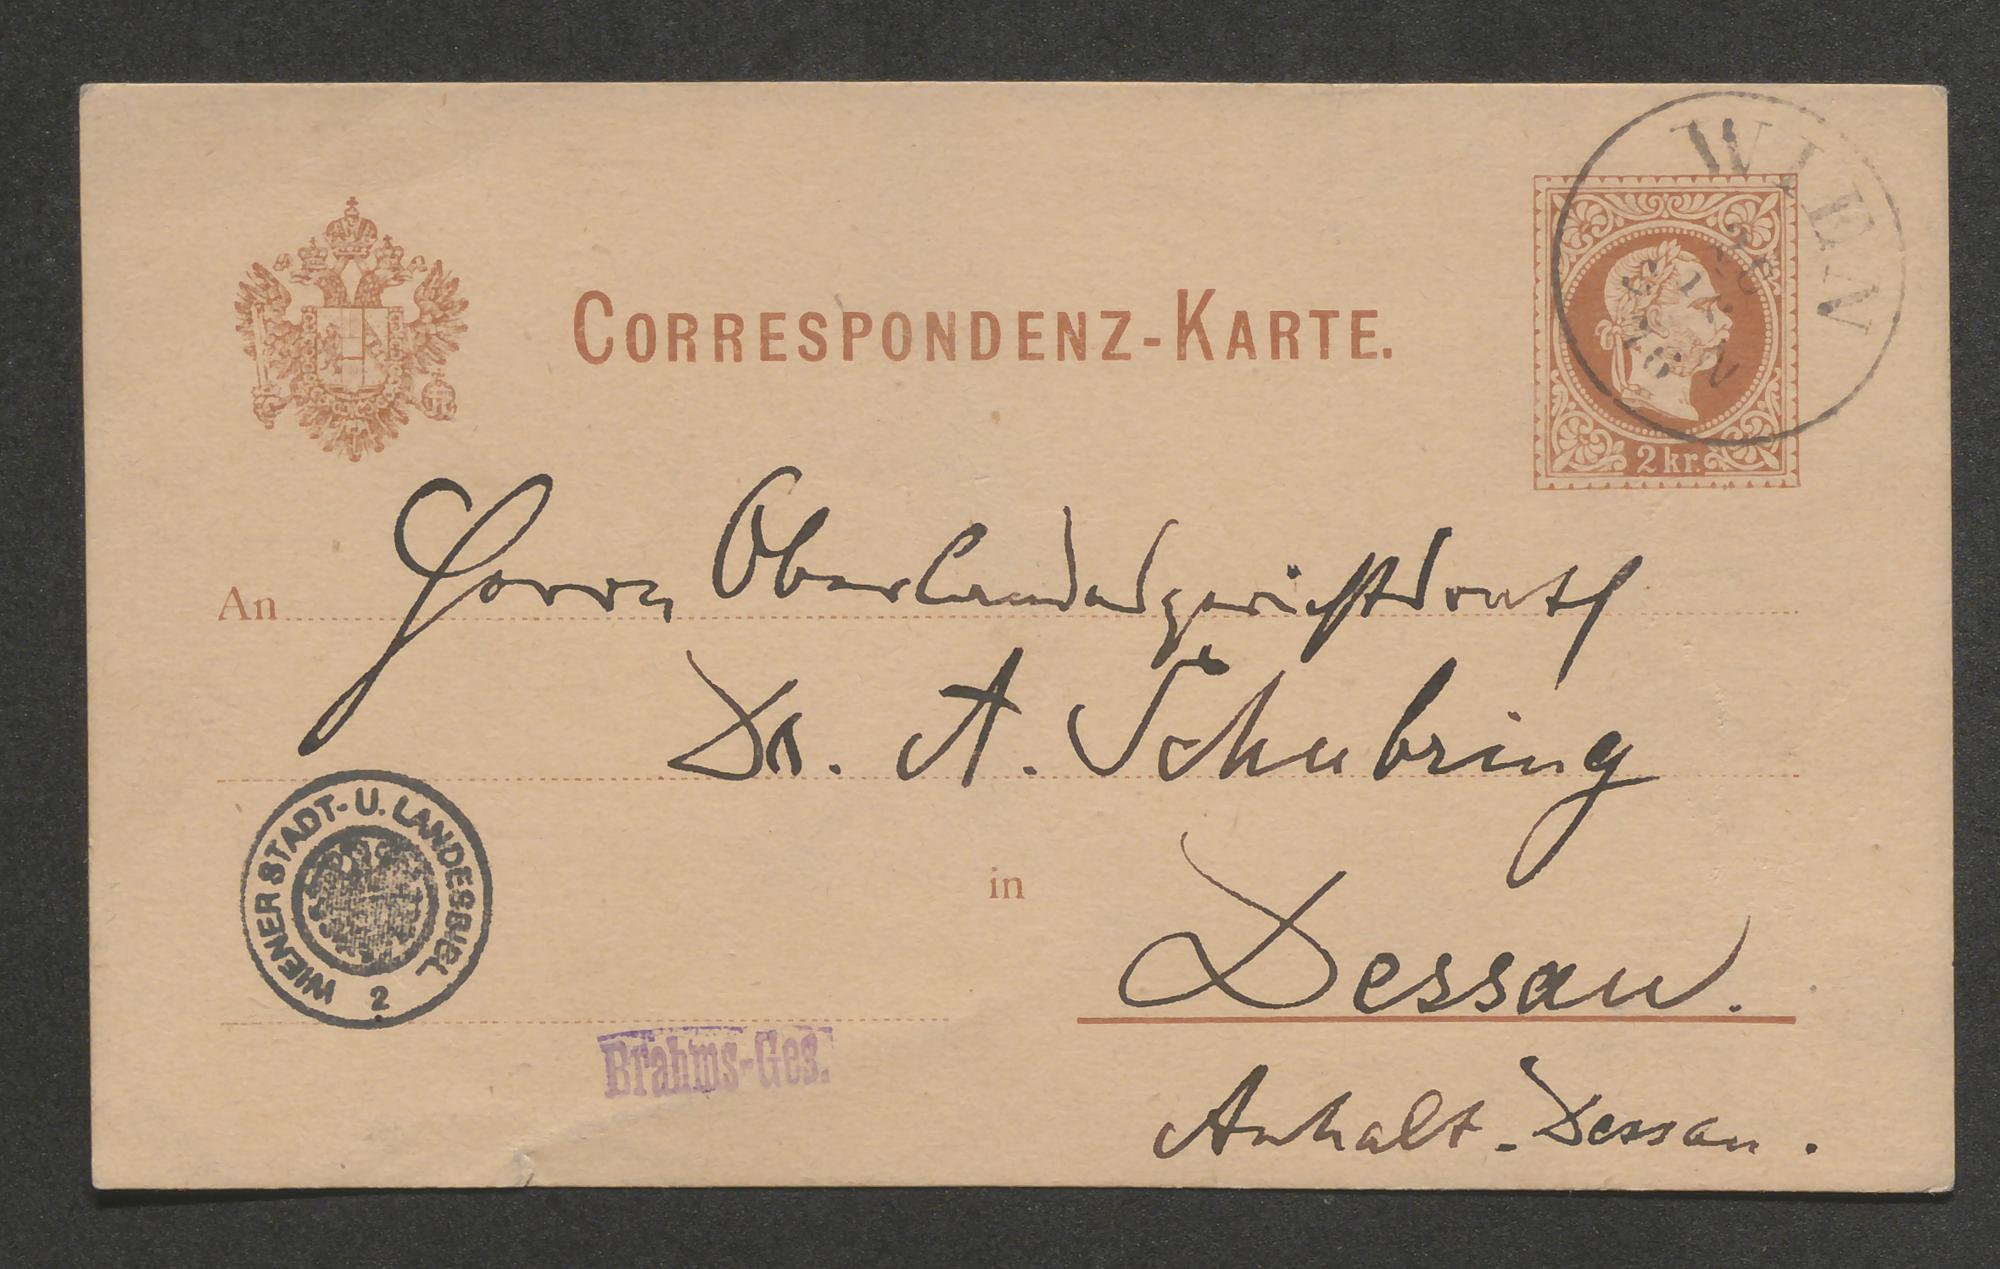 CORRESPONDENZ-KARTE.
WIEN
2 kr.
An Herrn Oberlandesgerichtsrath
Dr. A. Schubring
in Dessau.
Anhalt-Dessau.
WIENER STADT- U. LANDESBIBL.
2
Brahms-Ges.